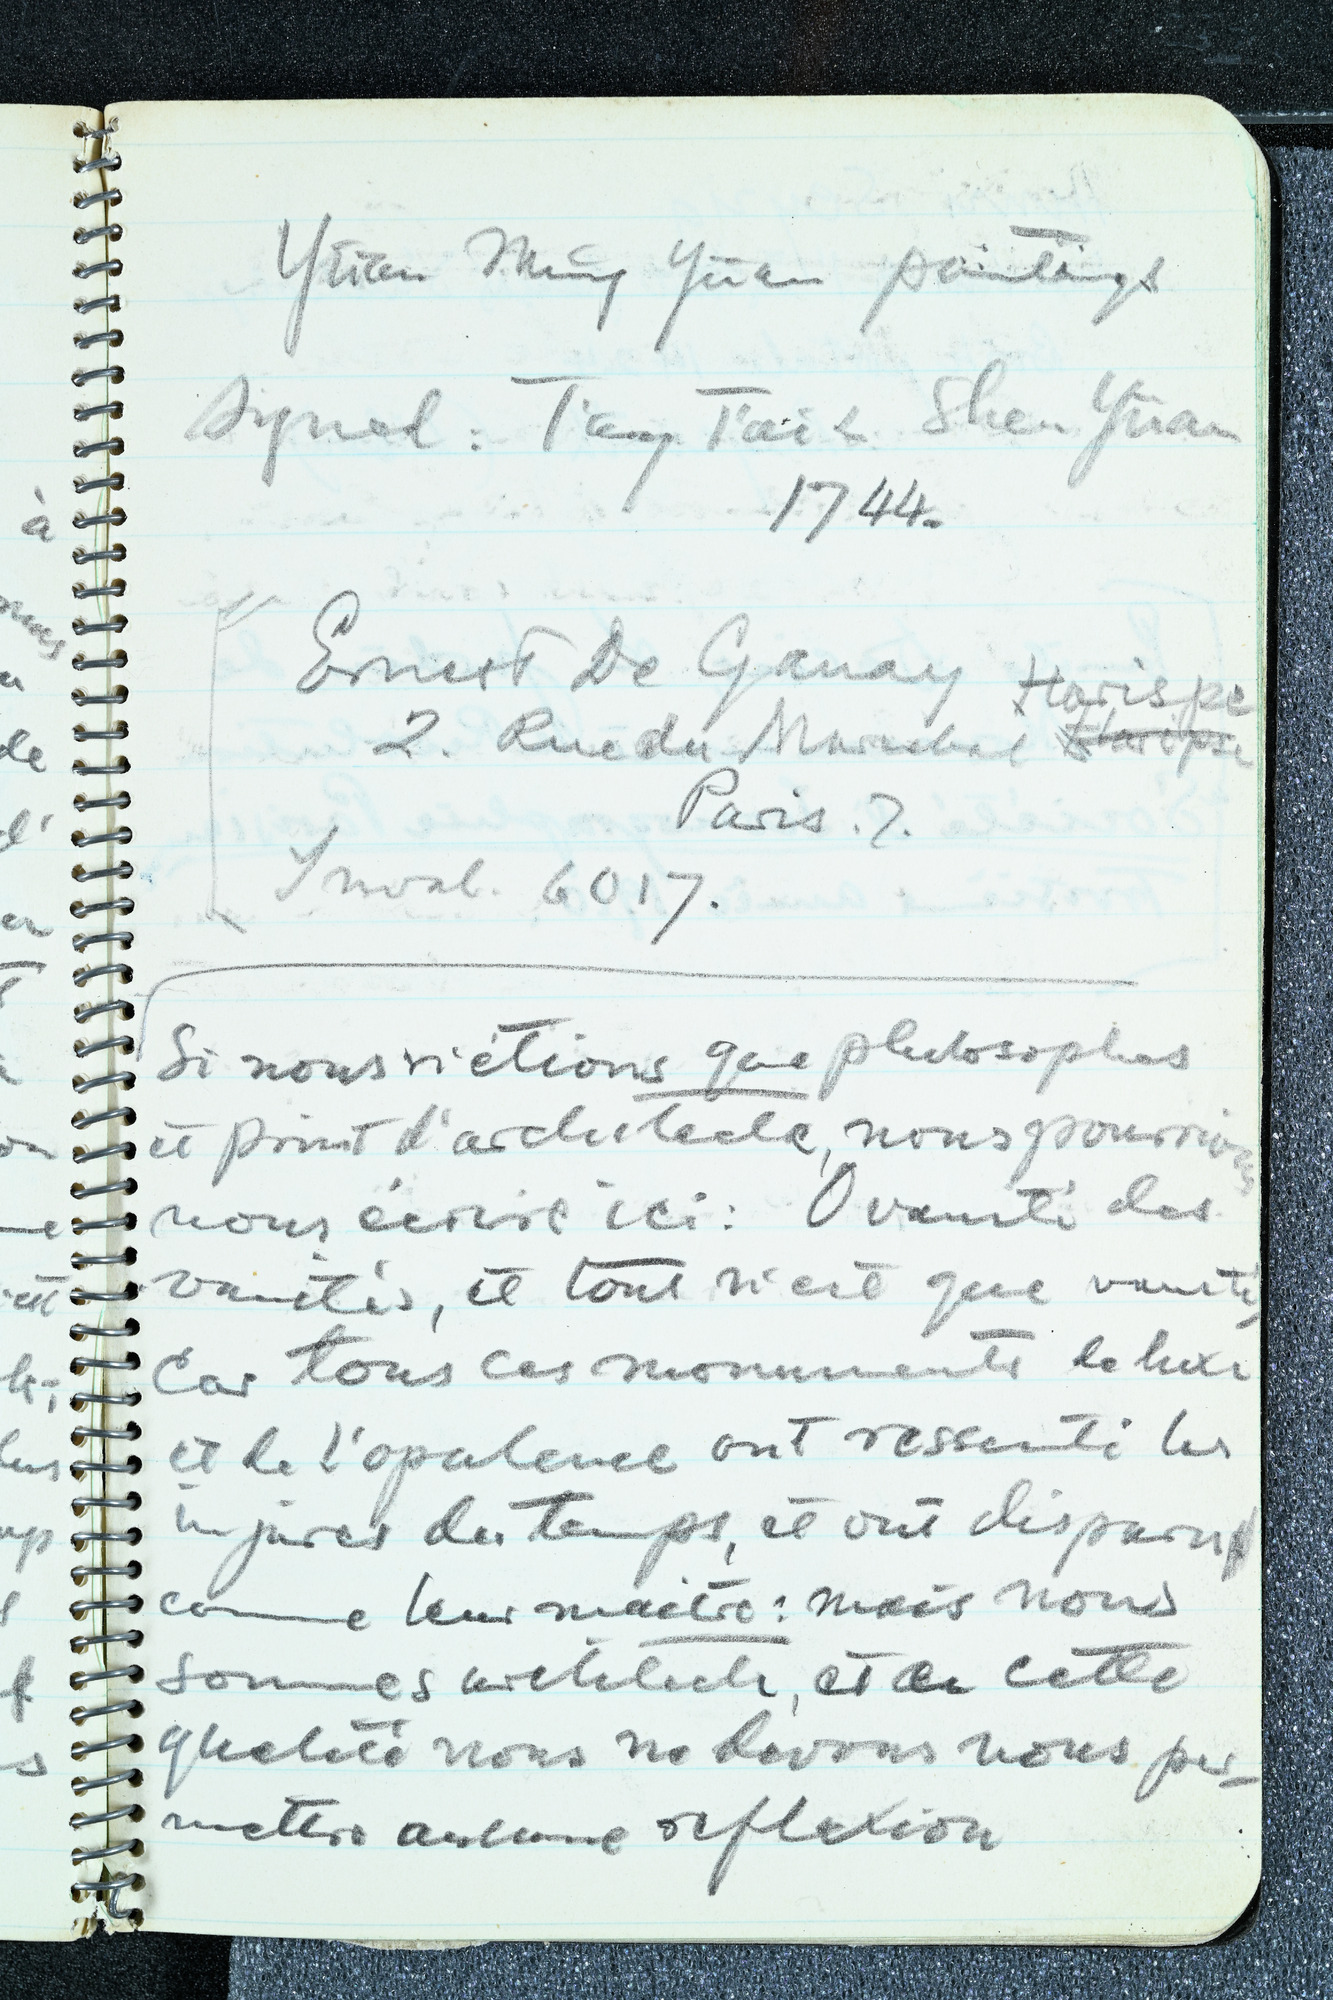 Yüan Ming Yüan paintings
signed: T'ang Tai & Shen Yüan
1744.
Ernest De Ganay
Harispe
2. Rue du Marechal Harispe
Paris. 7.
Inval. 6017.
Si nous n'étions que philosophes
et point d'architecte, nous pourrions
nous écrire ici: O vanité des
vanités, et tout n'est que vanité,
Car tous ces monuments de luxe
et de l'opulence ont ressenti les
injures du temps, et ont disparus
comme leur maitre: mais nous
sommes architecte, et en cette
qualité nous ne devons nous per-
mettre aucune reflexion
à
de
d'